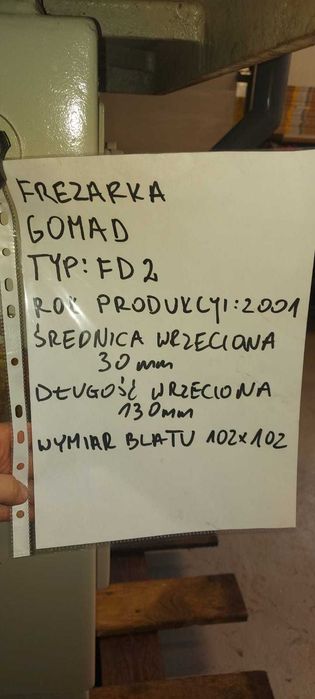 FREZARKA
GOMAD
TYP: FD2
ROK PRODUKCYI: 2001
ŚREDNICA WRZECIONA
30 mm
DŁUGOŚĆ WRZECIONA
130mm
WYMIAR BLATU 102x102